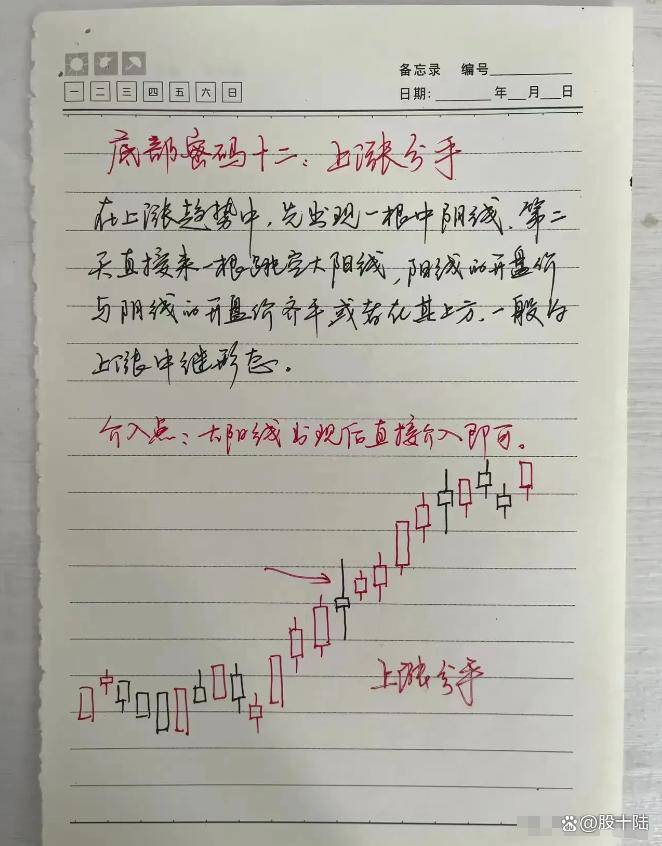 备忘录 编号
一 二 三 四 五 六 日
日期: 年 月 日
底部密码十二：上涨分手
在上涨趋势中，先出现一根中阴线，第二
天直接来一根跳空大阳线，阳线的开盘价
与阴线的开盘价齐平或者在其上方，一般为
上涨中继形态。
介入点：大阳线出现后直接介入即可。
上涨分手
@股十陆